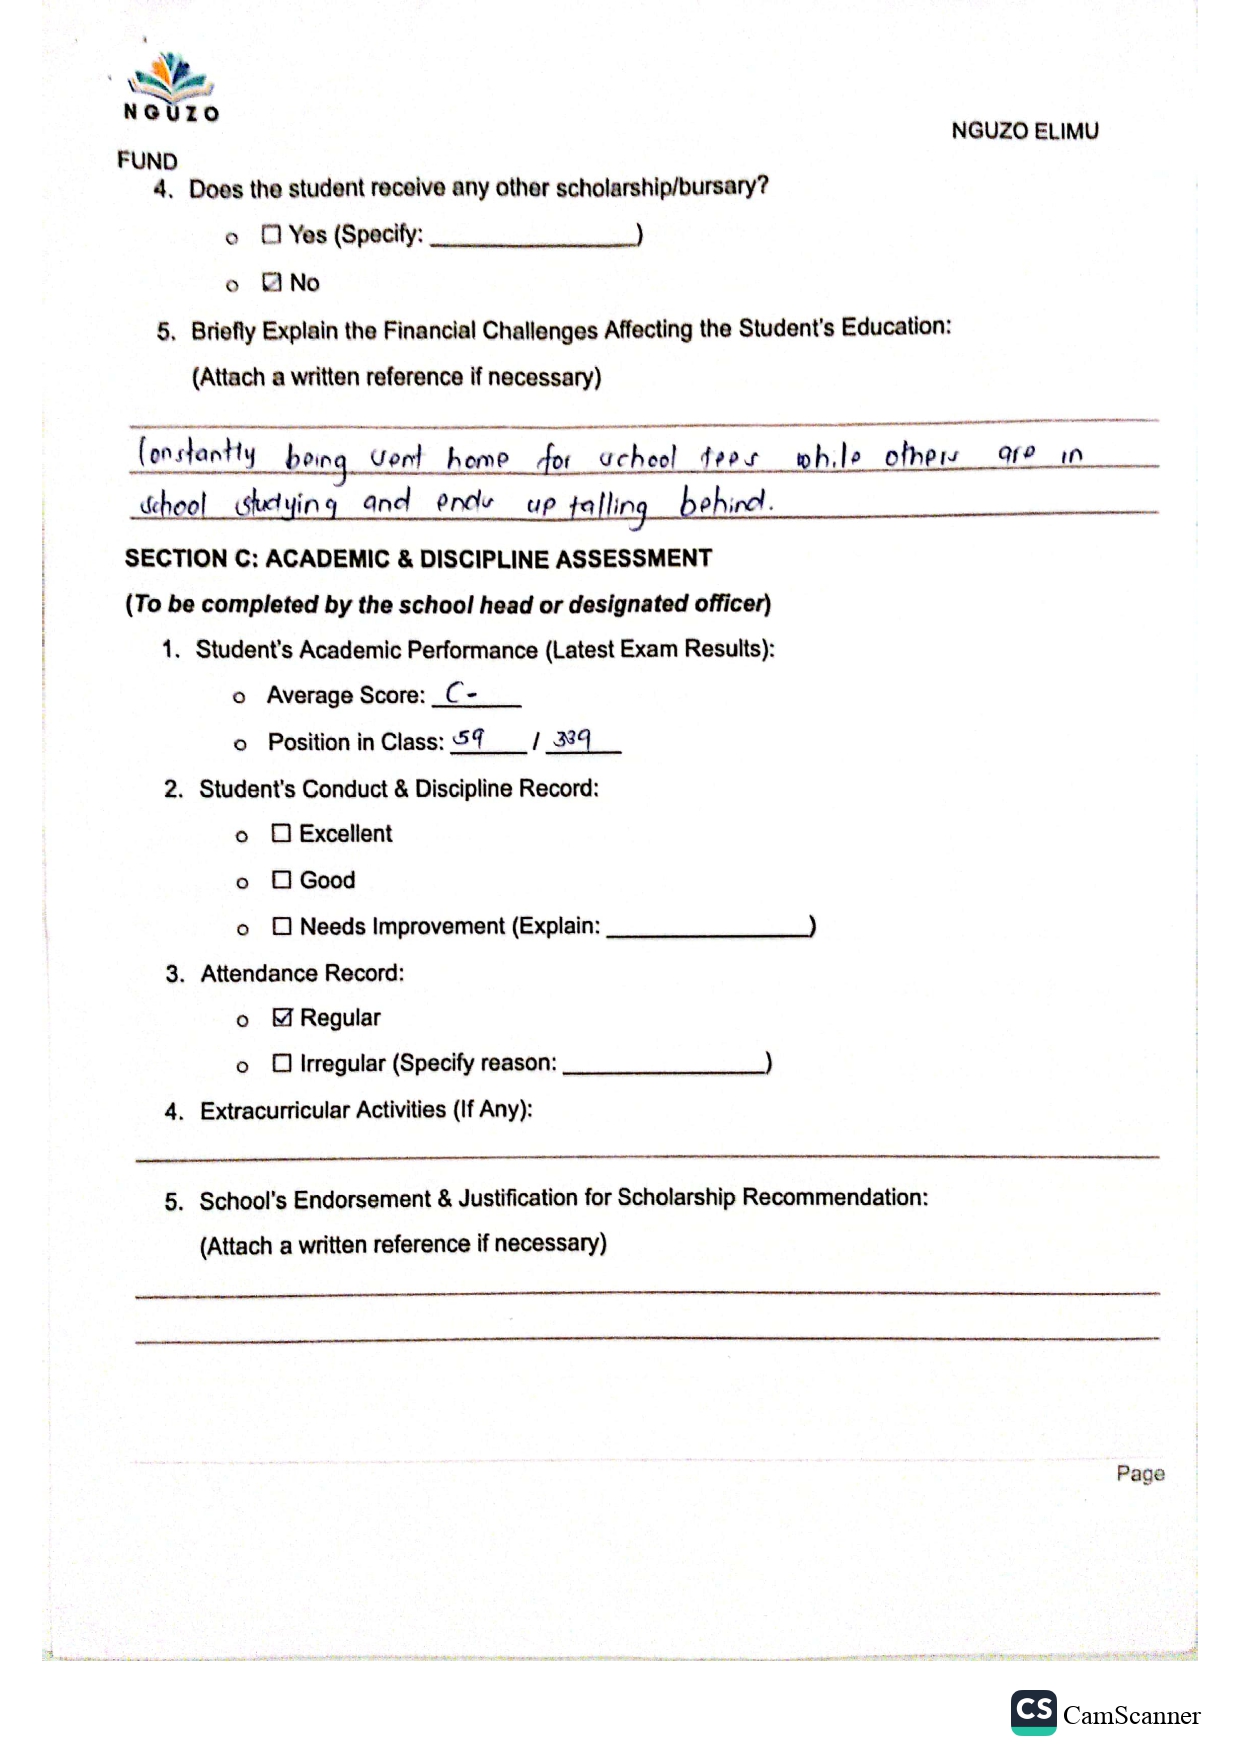 NGUZO
NGUZO ELIMU
FUND
4. Does the student receive any other scholarship/bursary?
o ☐ Yes (Specify: _______________)
o ☑ No
5. Briefly Explain the Financial Challenges Affecting the Student's Education:
(Attach a written reference if necessary)
Constantly being sent home for school fees while others are in
school studying and ends up falling behind.
SECTION C: ACADEMIC & DISCIPLINE ASSESSMENT
(To be completed by the school head or designated officer)
1. Student's Academic Performance (Latest Exam Results):
o Average Score: C-
o Position in Class: 59 / 339
2. Student's Conduct & Discipline Record:
o ☐ Excellent
o ☐ Good
o ☐ Needs Improvement (Explain: _______________)
3. Attendance Record:
o ☑ Regular
o ☐ Irregular (Specify reason: _______________)
4. Extracurricular Activities (If Any):
5. School's Endorsement & Justification for Scholarship Recommendation:
(Attach a written reference if necessary)
Page
CS CamScanner